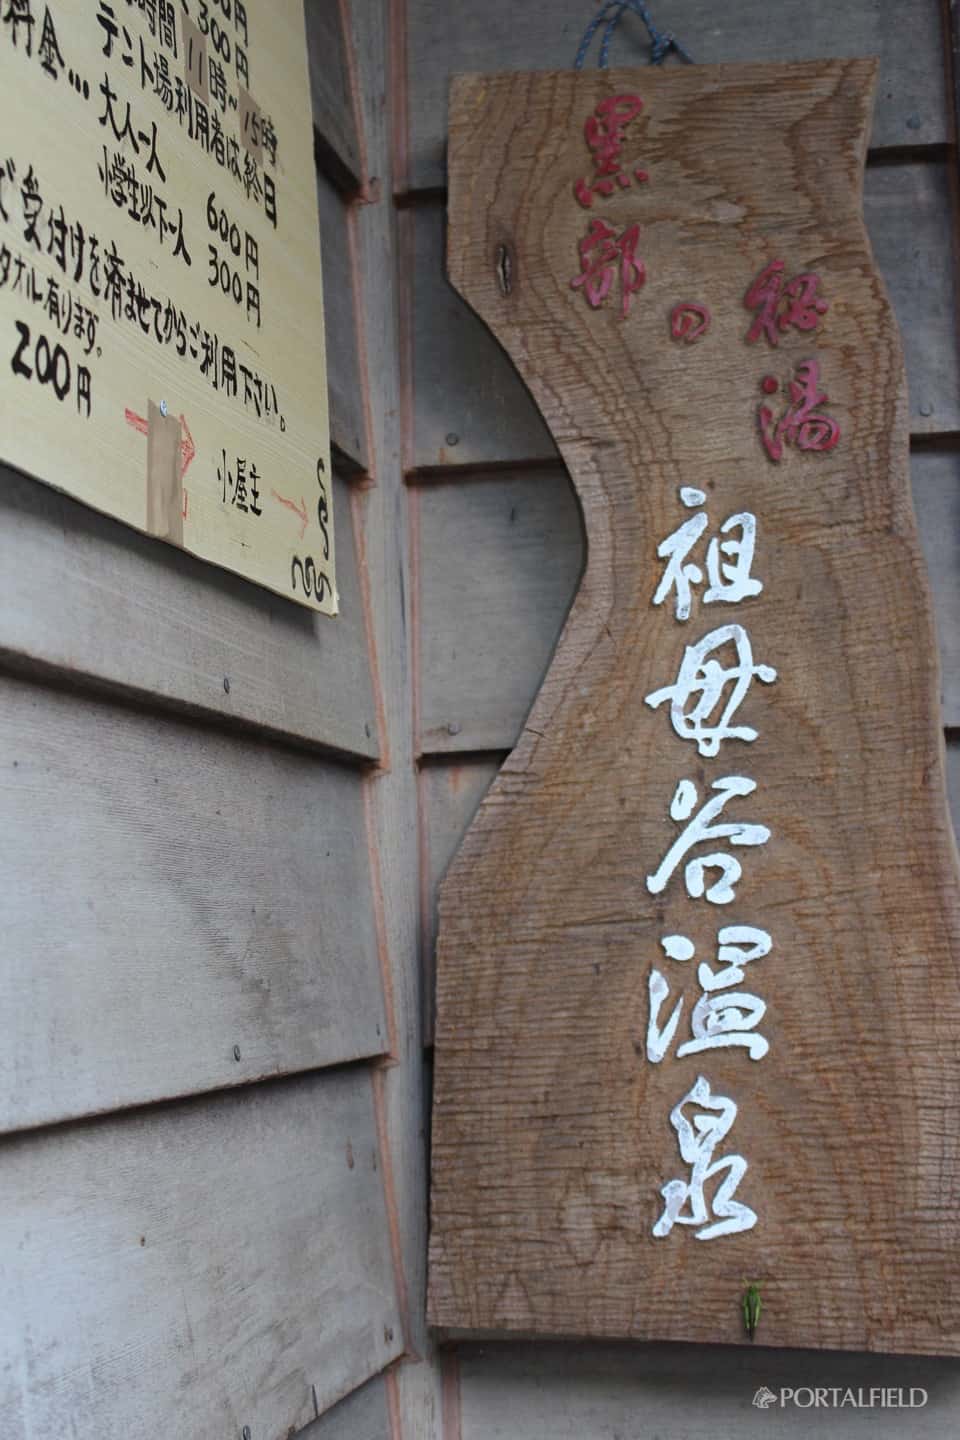 円
300円
時間 11時~15時
テント場利用者は終日
料金…大人一人 600円
小学生以下一人 300円
で受付けを済ませてからご利用下さい。
タオル有ります。
200円
小屋主
黒部の秘湯
祖母谷温泉
PORTALFIELD